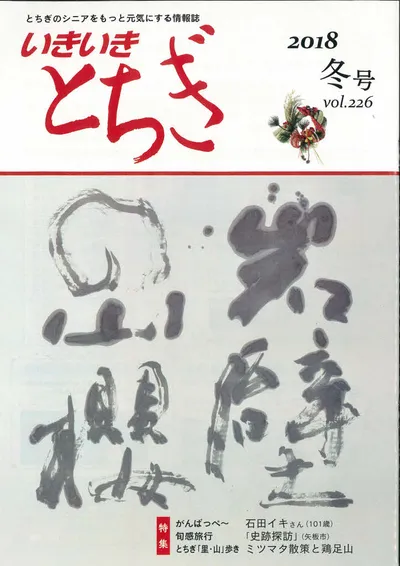 とちぎのシニアをもっと元気にする情報誌
いきいき
とちぎ
2018
冬号
vol.226
岩壁
の山櫻
特集
がんばっぺ〜 石田イキさん(101歳)
旬感旅行 「史跡探訪」(矢板市)
とちぎ「里・山」歩き ミツマタ散策と鶏足山